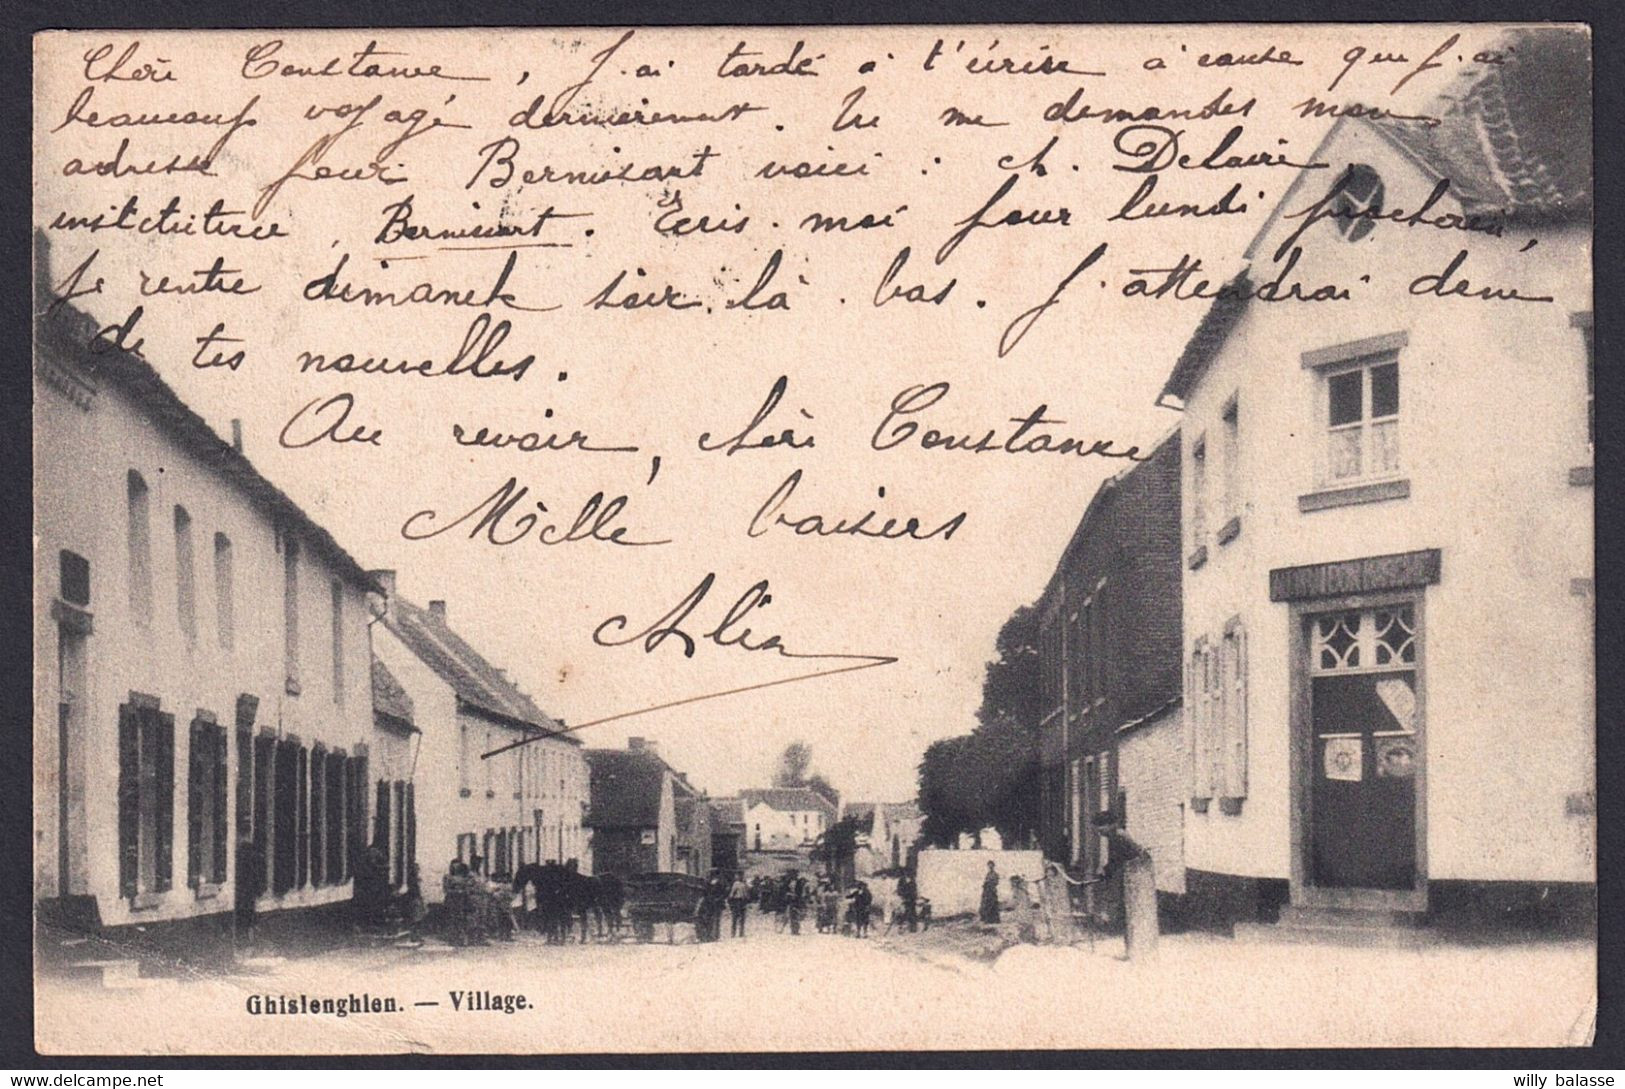 Chère Constance, J'ai tardé à t'écrire à cause que j'ai
beaucoup voyagé dernièrement. Tu me demandes mon
adresse pour Bernissart voici : Ch. Delavie
institutrice, Bernissart. Ecris-moi pour lundi prochain,
je rentre dimanche soir là-bas. J'attendrai donc
de tes nouvelles.
Au revoir, chère Constance
Mille baisers
Alix
Ghislenghien. — Village.
willy balasse